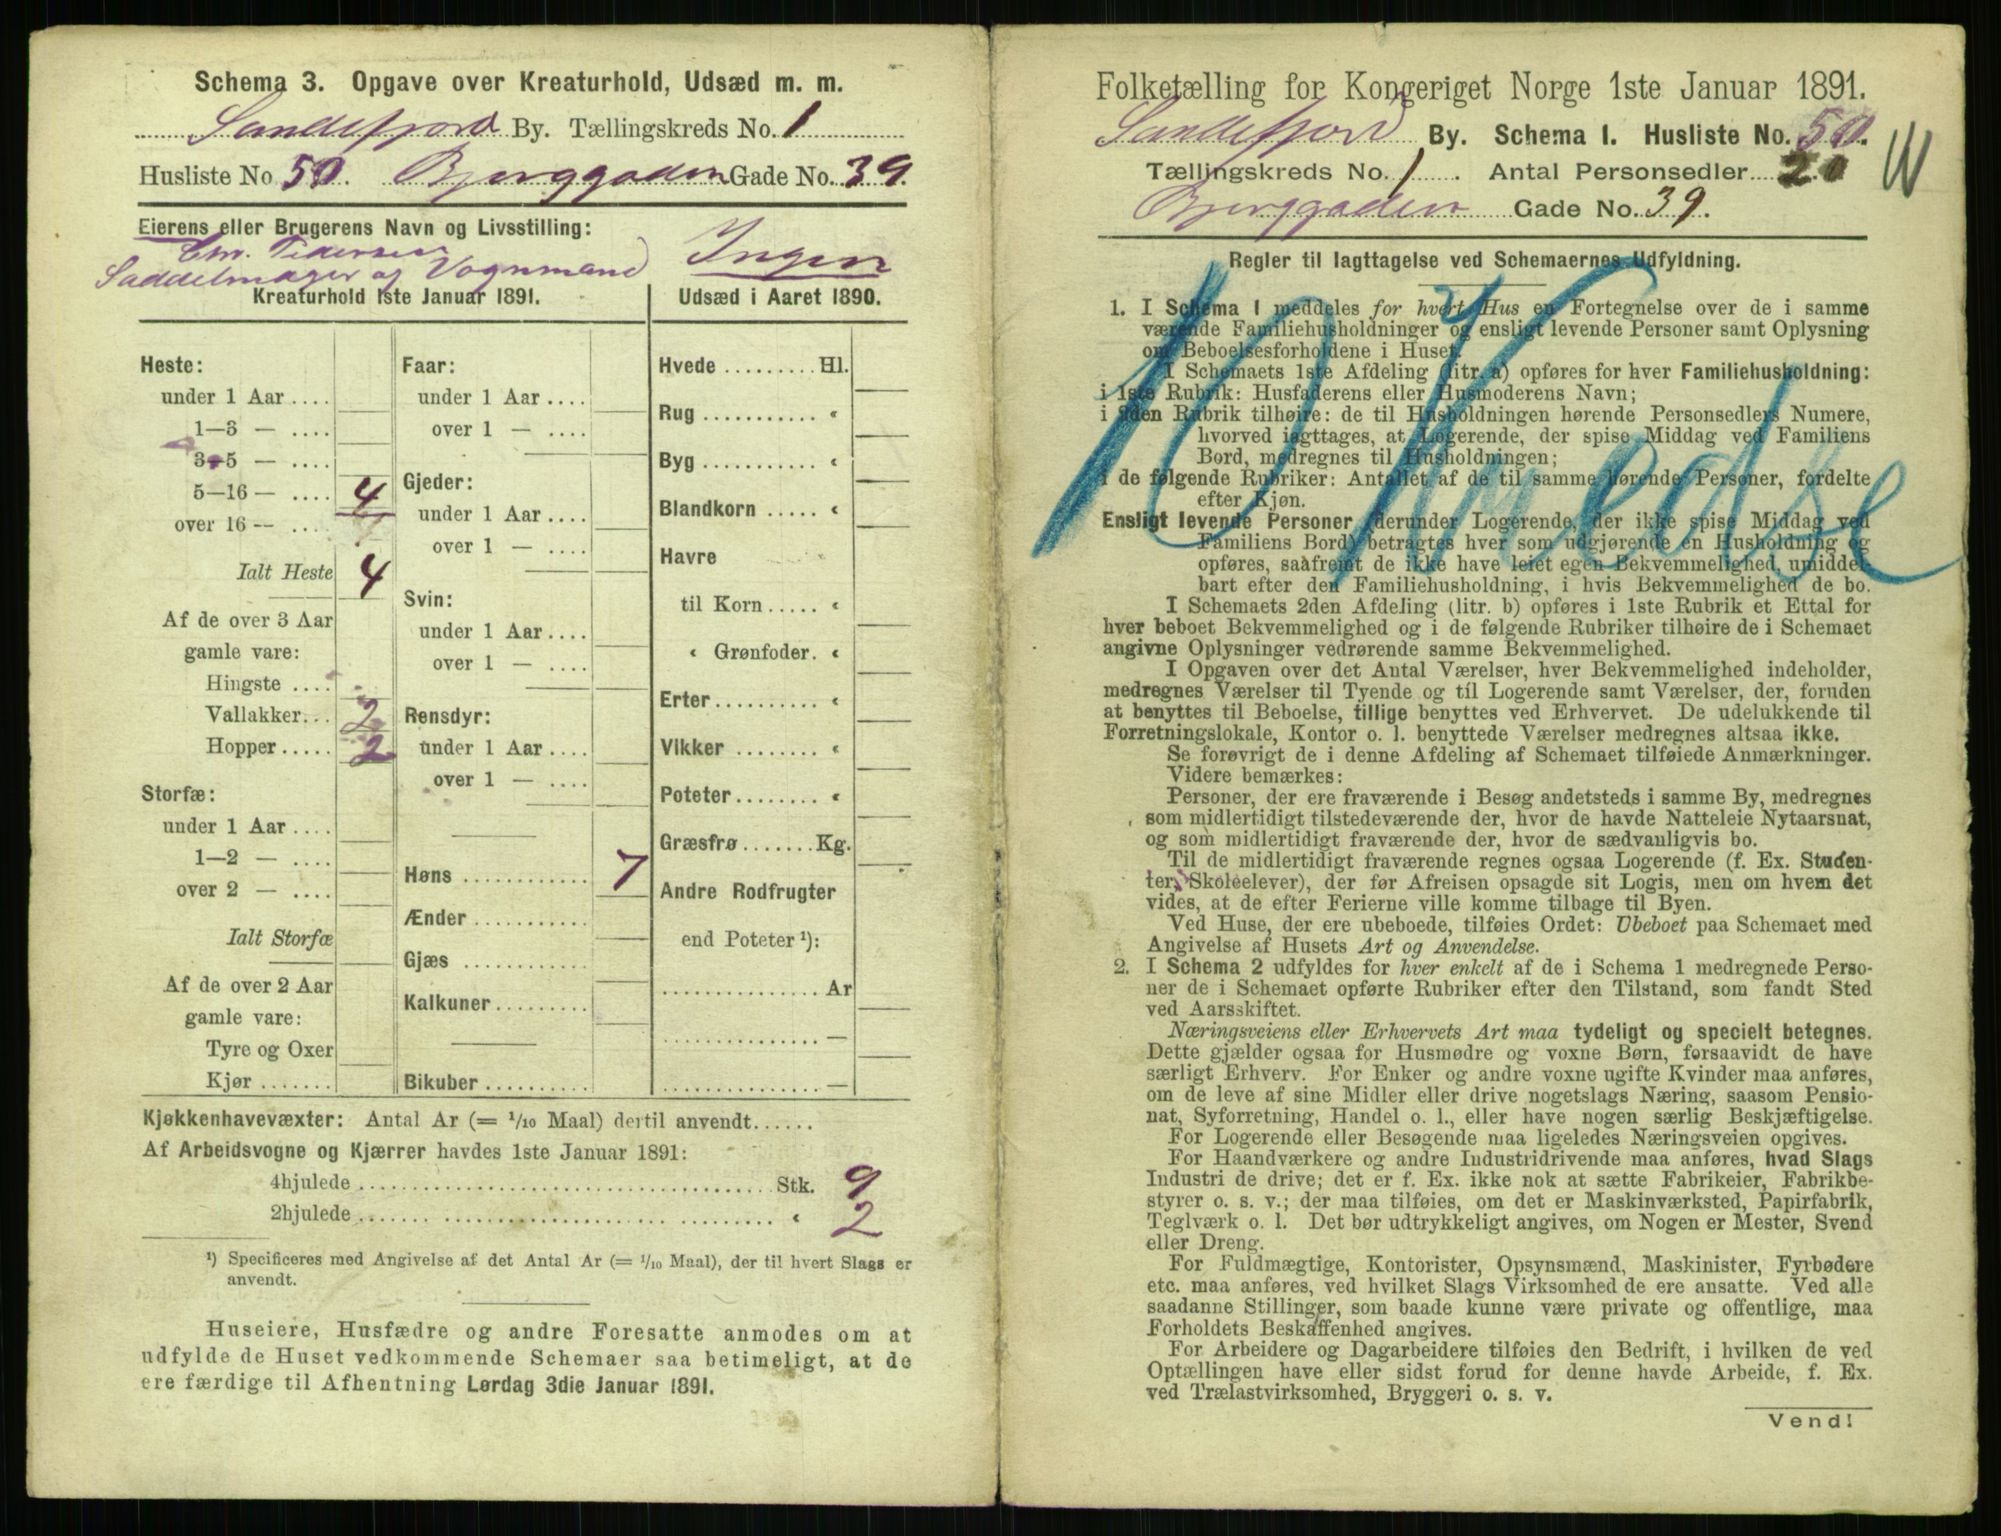 Schema 3. Opgave over Kreaturhold, Udsæd m. m.
Sandefjord By. Tællingskreds No. 1
Husliste No 50. Bjerggaden Gade No. 39.
Eierens eller Brugerens Navn og Livsstilling:
Chr. Pedersen
Saddelmager og Vognmand
Ingen
Kreaturhold 1ste Januar 1891.
Udsæd i Aaret 1890.
Heste:
under 1 Aar ....
1—3 — ....
3—5 — ....
5—16 — .... 4
over 16 — ...
Ialt Heste 4
Af de over 3 Aar
gamle vare:
Hingste ....
Vallakker... 2
Hopper..... 2
Storfæ:
under 1 Aar ....
1—2 — ....
over 2 — ....
Ialt Storfæ
Af de over 2 Aar
gamle vare:
Tyre og Oxer
Kjør .......
Faar:
under 1 Aar ....
over 1 — ....
Gjeder:
under 1 Aar ....
over 1 — ....
Svin:
under 1 Aar ....
over 1 — ....
Rensdyr:
under 1 Aar ....
over 1 — ....
Høns ............ 7
Ænder ............
Gjæs ............
Kalkuner .........
Bikuber ..........
Hvede ......... Hl.
Rug ............ «
Byg ............ «
Blandkorn ..... «
Havre
til Korn ..... «
« Grønfoder. «
Erter.......... «
Vikker ........ «
Poteter........ «
Græsfrø....... Kg.
Andre Rodfrugter
end Poteter ¹):
............... Ar
............... —
............... —
Kjøkkenhavevæxter: Antal Ar (= 1/10 Maal) dertil anvendt......
Af Arbeidsvogne og Kjærrer havdes 1ste Januar 1891:
4hjulede ........................................ Stk. 9
2hjulede ........................................ « 2
¹) Specificeres med Angivelse af det Antal Ar (= 1/10 Maal), der til hvert Slags er
anvendt.
Huseiere, Husfædre og andre Foresatte anmodes om at
udfylde de Huset vedkommende Schemaer saa betimeligt, at de
ere færdige til Afhentning Lørdag 3die Januar 1891.
Folketælling for Kongeriget Norge 1ste Januar 1891.
Sandefjord By. Schema 1. Husliste No. 50.
Tællingskreds No. 1. Antal Personsedler 20
Bjerggaden Gade No. 39.
Regler til Iagttagelse ved Schemaernes Udfyldning.
1. I Schema 1 meddeles for hvert Hus en Fortegnelse over de i samme
værende Familiehusholdninger og ensligt levende Personer samt Oplysning
om Beboelsesforholdene i Huset.
I Schemaets 1ste Afdeling (litr. a) opføres for hver Familiehusholdning:
i 1ste Rubrik: Husfaderens eller Husmoderens Navn;
i 2den Rubrik tilhøire: de til Husholdningen hørende Personsedlers Numere,
hvorved iagttages, at Logerende, der spise Middag ved Familiens
Bord, medregnes til Husholdningen;
i de følgende Rubriker: Antallet af de til samme hørende Personer, fordelte
efter Kjøn.
Ensligt levende Personer (derunder Logerende, der ikke spise Middag ved
Familiens Bord) betragtes hver som udgjørende en Husholdning og
opføres, saafremt de ikke have leiet egen Bekvemmelighed, umiddel-
bart efter den Familiehusholdning, i hvis Bekvemmelighed de bo.
I Schemaets 2den Afdeling (litr. b) opføres i 1ste Rubrik et Ettal for
hver beboet Bekvemmelighed og i de følgende Rubriker tilhøire de i Schemaet
angivne Oplysninger vedrørende samme Bekvemmelighed.
I Opgaven over det Antal Værelser, hver Bekvemmelighed indeholder,
medregnes Værelser til Tyende og til Logerende samt Værelser, der, foruden
at benyttes til Beboelse, tillige benyttes ved Erhvervet. De udelukkende til
Forretningslokale, Kontor o. l. benyttede Værelser medregnes altsaa ikke.
Se forøvrigt de i denne Afdeling af Schemaet tilføiede Anmærkninger.
Videre bemærkes:
Personer, der ere fraværende i Besøg andetsteds i samme By, medregnes
som midlertidigt tilstedeværende der, hvor de havde Natteleie Nytaarsnat,
og som midlertidigt fraværende der, hvor de sædvanligvis bo.
Til de midlertidigt fraværende regnes ogsaa Logerende (f. Ex. Studen-
ter, Skoleelever), der før Afreisen opsagde sit Logis, men om hvem det
vides, at de efter Ferierne ville komme tilbage til Byen.
Ved Huse, der ere ubeboede, tilføies Ordet: Ubeboet paa Schemaet med
Angivelse af Husets Art og Anvendelse.
2. I Schema 2 udfyldes for hver enkelt af de i Schema 1 medregnede Perso-
ner de i Schemaet opførte Rubriker efter den Tilstand, som fandt Sted
ved Aarsskiftet.
Næringsveiens eller Erhvervets Art maa tydeligt og specielt betegnes.
Dette gjælder ogsaa for Husmødre og voxne Børn, forsaavidt de have
særligt Erhverv. For Enker og andre voxne ugifte Kvinder maa anføres,
om de leve af sine Midler eller drive nogetslags Næring, saasom Pensio-
nat, Syforretning, Handel o. l., eller have nogen særlig Beskjæftigelse.
For Logerende eller Besøgende maa ligeledes Næringsveien opgives.
For Haandværkere og andre Industridrivende maa anføres, hvad Slags
Industri de drive; det er f. Ex. ikke nok at sætte Fabrikeier, Fabrikbe-
styrer o. s. v.; der maa tilføies, om det er Maskinværksted, Papirfabrik,
Teglværk o. l. Det bør udtrykkeligt angives, om Nogen er Mester, Svend
eller Dreng.
For Fuldmægtige, Kontorister, Opsynsmænd, Maskinister, Fyrbødere
etc. maa anføres, ved hvilket Slags Virksomhed de ere ansatte. Ved alle
saadanne Stillinger, som baade kunne være private og offentlige, maa
Forholdets Beskaffenhed angives.
For Arbeidere og Dagarbeidere tilføies den Bedrift, i hvilken de ved
Optællingen have eller sidst forud for denne havde Arbeide, f. Ex.
ved Trælastvirksomhed, Bryggeri o. s. v.
Vend!